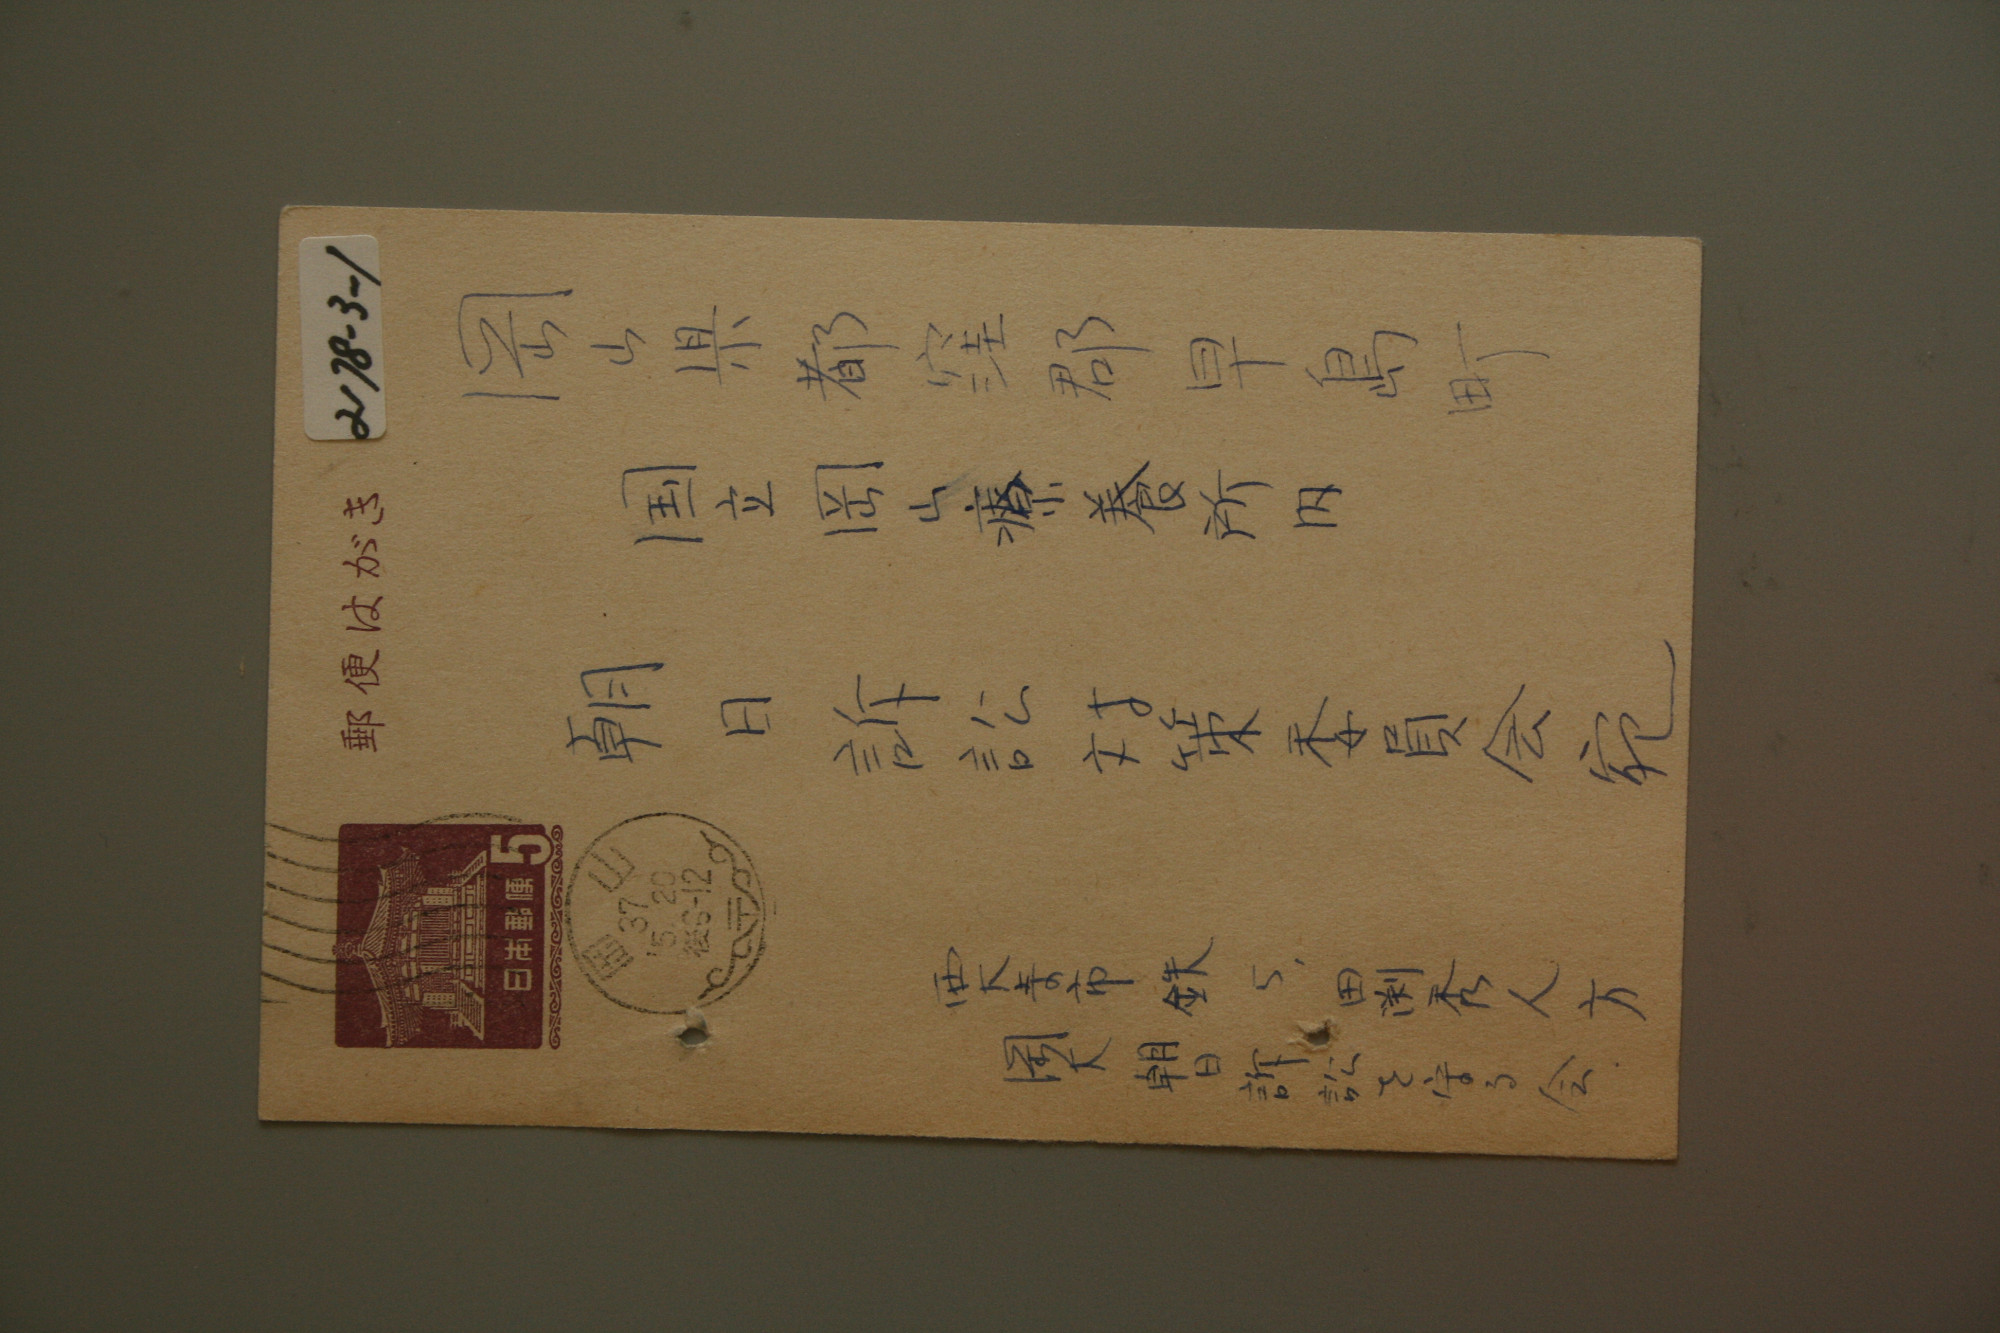 2178-3-1
郵便はがき
岡山県都窪郡早島町
国立岡山療養所内
朝日訴訟対策委員会宛
5
日本郵便
岡山
37
5.20
後6-12
西大寺市鉄 田淵秀人方
岡大朝日訴訟を守る会.